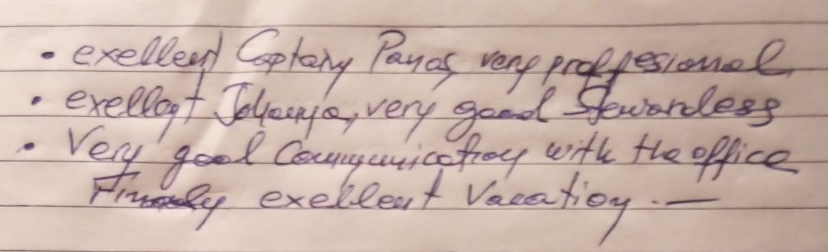 • exellent Captain Panos, very proffesional
• exellent Johanna, very good Stewardess
• Very good Communication with the office
Finaly exellent Vacation. —